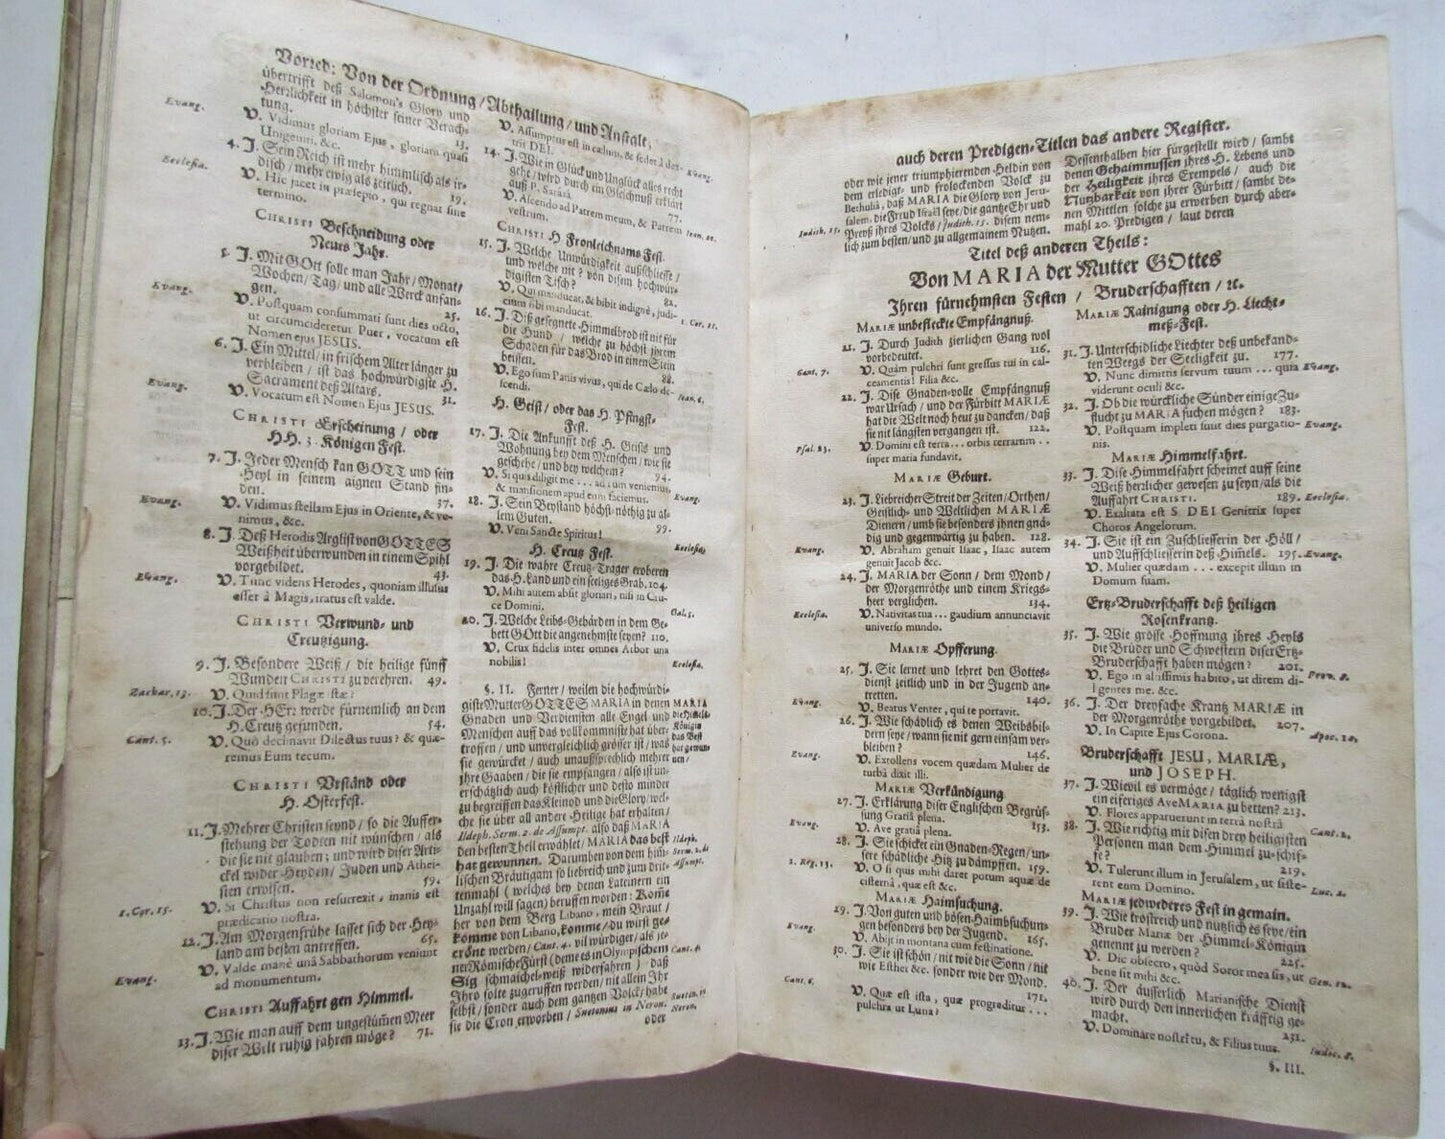 Vorred: Von der Ordnung / Abtheilung / und Anstalt,
übertrifft deß Salomon's Glory und
Herrlichkeit in höchster seiner Verach-
tung. 13.
Evang.
V. Vidimus gloriam Ejus, gloriam quasi
Unigeniti, &c.
4. J. Sein Reich ist mehr himmlisch als ir-
disch / mehr ewig als zeitlich. 19.
Ecclesia.
V. Hic jacet in præsepio, qui regnat sine
termino.
CHRISTI Beschneidung oder
Neues Jahr.
5. J. Mit GOtt solle man Jahr / Monat /
Wochen / Tag / und alle Werck anfan-
gen. 25.
Evang.
V. Postquam consummati sunt dies octo,
ut circumcideretur Puer, vocatum est
Nomen ejus JESUS.
6. J. Ein Mittel / in frischem Alter länger zu
verbleiben / ist das hochwürdigste H.
Sacrament deß Altars. 31.
Evang.
V. Vocatum est Nomen Ejus JESUS.
CHRISTI Erscheinung / oder
HH. 3. Königen Fest.
7. J. Jeder Mensch kan GOTT und sein
Heyl in seinem aignen Stand fin-
den. 37.
Evang.
V. Vidimus stellam Ejus in Oriente, & ve-
nimus, &c.
8. J. Deß Herodis Arglist von GOTTES
Weißheit überwunden in einem Spihl
vorgebildet. 43.
Evang.
V. Tunc videns Herodes, quoniam illusus
esset à Magis, iratus est valde.
CHRISTI Verwund- und
Creutzigung.
9. J. Besondere Weiß / die heilige fünff
Wunden CHRISTI zu verehren. 49.
Zachar. 13.
V. Quid sunt Plagæ istæ?
10. J. Der HErr werde fürnemlich an dem
H. Creutz gefunden. 54.
Cant. 5.
V. Quò declinavit Dilectus tuus? & quæ-
remus Eum tecum.
CHRISTI Urständ oder
H. Osterfest.
11. J. Mehrer Christen seynd / so die Auffer-
stehung der Todten nit wünschen / als
die sie nit glauben; und wird diser Arti-
ckel wider Heyden / Juden und Athei-
sten erwisen. 59.
1. Cor. 15.
V. Si Christus non resurrexit, inanis est
prædicatio nostra.
12. J. Am Morgenfrühe lasset sich der Hey-
land am besten antreffen. 65.
Evang.
V. Valde manè unâ Sabbathorum veniunt
ad monumentum.
CHRISTI Auffahrt gen Himmel.
13. J. Wie man auff dem ungestümen Meer
diser Welt ruhig fahren möge? 71.
V. Assumptus est in cælum, & sedet à dex-
tris DEI.
Evang.
14. J. Wie in Glück und Unglück alles recht
gehe / wird durch ein Gleichnuß erklärt
auß P. Sarasâ 77.
V. Ascendo ad Patrem meum, & Patrem
vestrum.
Joan. 20.
CHRISTI H Fronleichnams Fest.
15. J. Welche Unwürdigkeit außschliesse /
und welche nit? von disem hochwür-
digisten Tisch? 82.
V. Qui manducat, & bibit indignè, judi-
cium sibi manducat.
1. Cor. 11.
16. J. Diß gesegnete Himmelbrod ist nit für
die Hund / welche zu höchst ihrem
Schaden für das Brod in einen Stein
beissen. 88.
V. Ego sum Panis vivus, qui de Cælo de-
scendi.
Joan. 6.
H. Geist / oder das H. Pfingst-
Fest.
17. J. Die Ankunfft deß H. Geists und
Wohnung bey dem Menschen / wie sie
geschehe / und bey welchem? 94.
V. Si quis diligit me ... ad eum veniemus,
& mansionem apud eum faciemus.
Evang.
18. J. Sein Beystand höchst-nöthig zu al-
lem Guten. 99.
V. Veni Sancte Spiritus!
Ecclesia.
H. Creutz Fest.
19. J. Die wahre Creutz-Trager eroberen
das H. Land und ein seeliges Grab. 104.
V. Mihi autem absit gloriari, nisi in Cru-
ce Domini.
Gal. 5.
20. J. Welche Leibs-Gebärden in dem Ge-
bett GOtt die angenehmste seyen? 110.
V. Crux fidelis inter omnes Arbor una
nobilis!
Ecclesia.
§. II. Ferner / weilen die hochwürdi-
giste Mutter GOTTES MARIA in denen
Gnaden und Verdiensten alle Engel und
Menschen auff das vollkommniste hat über-
troffen / und unvergleichlich grösser ist / was
sie gewürcket / auch unaussprechlich mehrer
ihre Gaaben / die sie empfangen / also ist un-
erschätzlich auch köstlicher und desto minder
zu begreiffen das Kleinod und die Glory / wel-
che sie über all andere Heilige hat erhalten /
Ildeph. Serm. 2. de Assumpt. also daß MARIA
den besten Theil erwählet / MARIA das best
hat gewunnen. Darumben von dem him-
lischen Bräutigam so liebreich und zum drit-
tenmahl (welches bey denen Lateinern ein
Unzahl will sagen) beruffen worden: Kome
her von dem Berg Libano, mein Braut /
komme von Libano, komme / du wirst ge-
crönt werden / Cant. 4. vil würdiger / als je-
ner Römische Fürst (deme es in Olympischem
Sig schmaichel-weiß widerfahren) daß
Ihro solte zugeruffen werden / nit allein Ihr
selbst / sonder auch dem gantzen Volck / habe
sie die Cron erworben / Suetonius in Neron.
oder
MARIA
die Himels-
Königin
das Best
hat gewun-
nen /
Ildeph.
Serm. 2. de
Assumpt.
Cant. 4.
Sueton. in
Neron.
auch deren Predigen-Titlen das andere Register.
oder wie jener triumphierenden Heldin von
dem erledigt- und frolockenden Volck zu
Bethuliâ, daß MARIA die Glory von Jeru-
salem, die Freud Israël seye / die gantze Ehr und
Preyß ihres Volcks / Judith. 15. disem nem-
lich zum besten / und zu allgemainem Nutzen.
Judith. 15.
Dessenthalben hier fürgestellt wird / sambt
denen Gehaimnussen ihres H. Lebens und
der Heiligkeit ihres Exempels / auch die
Nutzbarkeit von ihrer Fürbitt / sambt de-
nen Mittlen solche zu erwerben durch aber-
mahl 20. Predigen / laut deren
Titel deß anderen Theils:
Von MARIA der Mutter GOttes
Ihren fürnehmsten Festen / Bruderschafften / ꝛc.
MARIÆ unbefleckte Empfängnuß.
21. J. Durch Judith zierlichen Gang wol
vorbedeutet. 116.
Cant. 7.
V. Quàm pulchri sunt gressus tui in cal-
ceamentis! Filia &c.
22. J. Dise Gnaden-volle Empfängnuß
war Ursach / und der Fürbitt MARIÆ
hat die Welt noch heut zu dancken / daß
sie nit längsten vergangen ist. 122.
Psal. 23.
V. Domini est terra ... orbis terrarum ..
super maria fundavit.
MARIÆ Geburt.
23. J. Liebreicher Streit der Zeiten / Orthen /
Geistlich- und Weltlichen MARIÆ
Dienern / umb sie besonders ihnen gnä-
dig und gegenwärtig zu haben. 128.
Evang.
V. Abraham genuit Isaac, Isaac autem
genuit Jacob &c.
24. J. MARIA der Sonn / dem Mond /
der Morgenröthe und einem Kriegs-
heer verglichen. 134.
Ecclesia.
V. Nativitas tua ... gaudium annunciavit
universo mundo.
MARIÆ Opfferung.
25. J. Sie lernet und lehret den Gottes-
dienst zeitlich und in der Jugend an-
tretten. 140.
Evang.
V. Beatus Venter, qui te portavit.
26. J. Wie schädlich es denen Weibsbil-
dern seye / wann sie nit gern einsam ver-
bleiben? 146.
Evang.
V. Extollens vocem quædam Mulier de
turbâ dixit illi.
MARIÆ Verkündigung
27. J. Erklärung diser Englischen Begrüs-
sung Gratiâ plena. 153.
Evang.
V. Ave gratiâ plena.
28. J. Sie schicket ein Gnaden-Regen / un-
sere schädliche Hitz zu dämpffen. 159.
2. Reg. 23.
V. O si quis mihi daret potum aquæ de
cisternâ, quæ est &c.
MARIÆ Haimsuchung.
29. J. Von guten und bösen Haimbsuchun-
gen besonders bey der Jugend. 165.
Evang.
V. Abijt in montana cum festinatione.
30. J. Sie ist schön / nit wie die Sonn / nit
wie Esther &c. sonder wie der Mond.
171.
Cant. 6.
V. Quæ est ista, quæ progreditur ...
pulchra ut Luna?
MARIÆ Rainigung oder H. Liecht-
meß-Fest.
31. J. Unterschidliche Liechter deß unbekand-
ten Weegs der Seeligkeit zu. 177.
V. Nunc dimittis servum tuum ... quia
viderunt oculi &c.
Evang.
32. J. Ob die würckliche Sünder einige Zu-
flucht zu MARIA suchen mögen? 183.
V. Postquam impleti sunt dies purgatio-
nis.
Evang.
MARIÆ Himmelfahrt.
33. J. Dise Himmelfahrt scheinet auff seine
Weiß herrlicher gewesen zu seyn / als die
Auffahrt CHRISTI. 189.
Ecclesia.
V. Exaltata est S. DEI Genitrix super
Choros Angelorum.
34. J. Sie ist ein Zuschliesserin der Höll /
und Auffschliesserin deß Himels. 195.
Evang.
V. Mulier quædam ... excepit illum in
Domum suam.
Ertz-Bruderschafft deß heiligen
Rosenkrantz.
35. J. Wie grosse Hoffnung ihres Heyls
die Brüder und Schwestern diser Ertz-
Bruderschafft haben mögen? 201.
V. Ego in altissimis habito, ut ditem di-
ligentes me. &c.
Prov. 8.
36. J. Der dreyfache Krantz MARIÆ in
der Morgenröthe vorgebildet. 207.
V. In Capite Ejus Corona.
Apoc. 12.
Bruderschafft JESU, MARIÆ,
und JOSEPH.
37. J. Wievil es vermöge / täglich wenigst
ein eiferiges Ave MARIA zu betten? 213.
V. Flores apparuerunt in terrâ nostrâ
Cant. 2.
38. J. Wie richtig mit disen drey heiligisten
Personen man dem Himmel zu-schif-
fe? 219.
V. Tulerunt illum in Jerusalem, ut siste-
rent eum Domino.
Luc. 2.
MARIÆ jedwederes Fest in gemain.
39. J. Wie trostreich und nutzlich es seye / ein
Bruder Mariæ der Himmel-Königin
genennt zu werden? 225.
V. Dic obsecro, quòd Soror mea sis, ut
bene sit mihi &c.
Gen. 12.
40. J. Der äusserlich Marianische Dienst
wird durch den innerlichen kräfftig ge-
macht. 231.
V. Dominare nostri tu, & Filius tuus.
Judic. 8.
§. III.